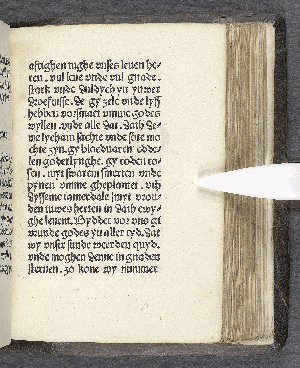 aftighen tughe vnses leuen he-
ren . vul leue vnde vul gnade .
stark vnde duldych yn yuwer
droefnisse . de gy zele vnde lyff
hebben vorsmaet vmme godes
wyllen . vnde alle dat . dath de-
me lycham sachte vnde sote mo
chte zyn . gy bloeduaren edde-
len goderlynghe . gy roden ro-
sen . myt swaren smerten vnde
pynen vmme gheplantet . vth
dysseme iamerdale in
den iuwes herten in dath ewy-
ghe leuent . Byddet vor vns ge
wunde godes yn aller tyd . dat
wy vnser sunde werden quyd .
vnde moghen denne in gnaden
steruen . zo kone wy nummer